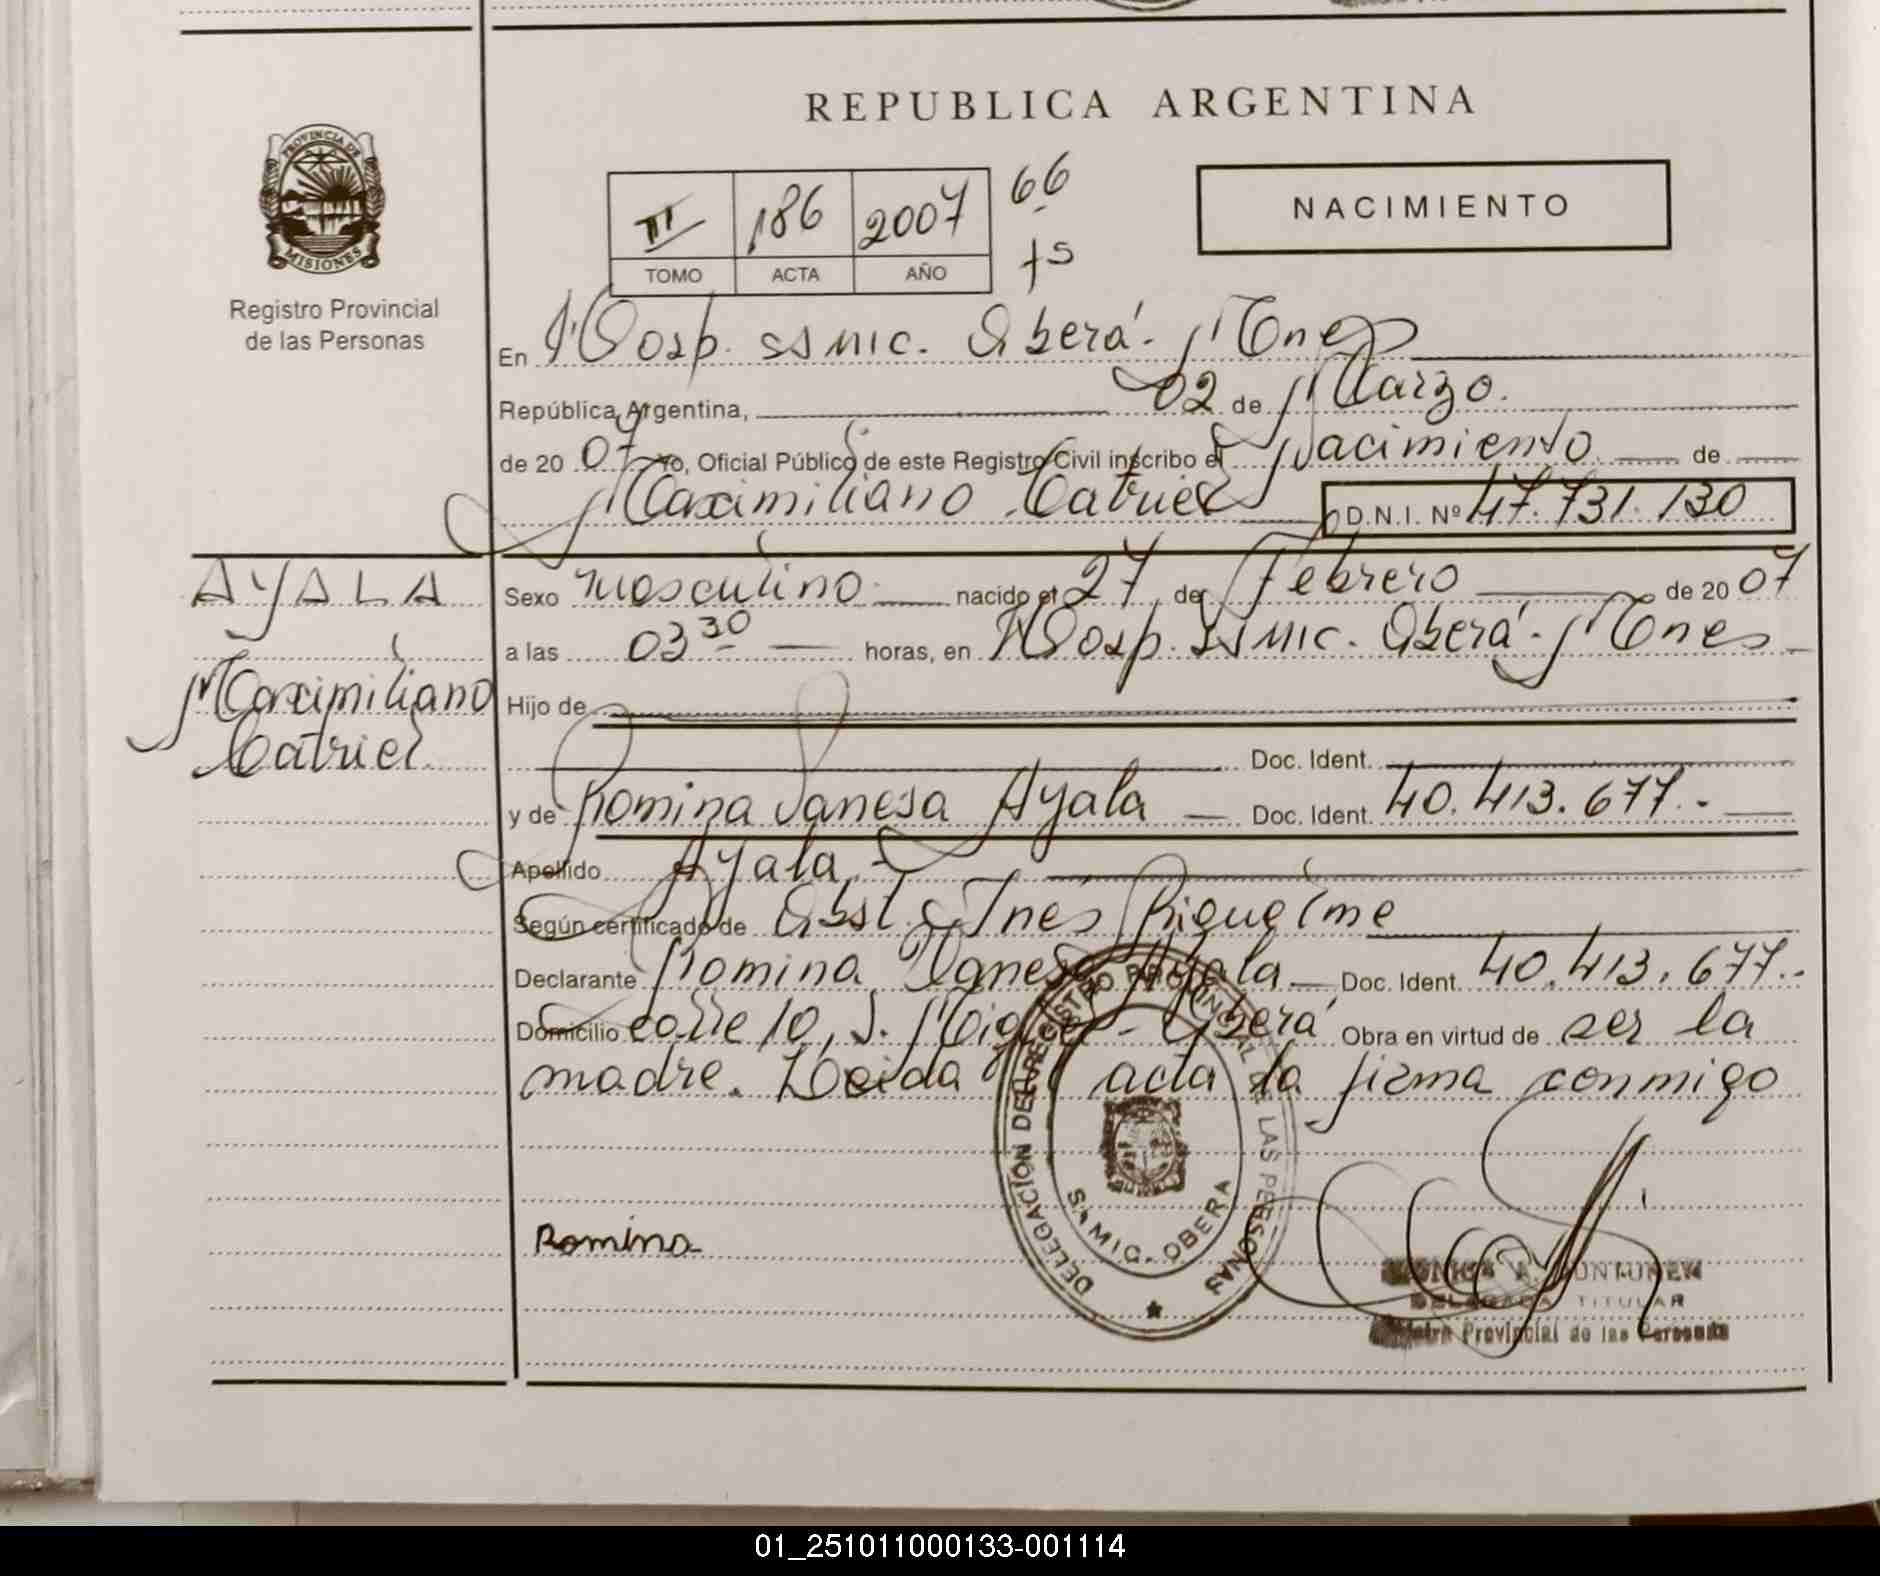 REPUBLICA ARGENTINA
PROVINCIA DE MISIONES
Registro Provincial
de las Personas
III 186 2007 66
TOMO ACTA AÑO
NACIMIENTO
En Hosp. SSMIC. Oberá - Mnes
República Argentina, 02 de Marzo.
de 2007 Yo, Oficial Público de este Registro Civil inscribo el Nacimiento de
Maximiliano Catriel D.N.I. Nº 47.731.130
AYALA
Maximiliano
Catriel
Sexo masculino nacido el 27 de Febrero de 2007
a las 03 30 horas, en Hosp. SSMIC. Oberá - Mnes
Hijo de
Doc. Ident.
y de Romina Vanesa Ayala Doc. Ident. 40.413.677.-
Apellido Ayala.-
Según certificado de Obst. Inés Riquelme
Declarante Romina Vanesa Ayala Doc. Ident. 40.413.677.-
Domicilio calle 10, S. Miguel - Oberá Obra en virtud de ser la
madre. Leida el acta la firma conmigo
DELEGACIÓN DEL REGISTRO PROVINCIAL DE LAS PERSONAS
SAMIC - OBERA
Romina
DELEGADA TITULAR
Provincial de las Personas
01_251011000133-001114